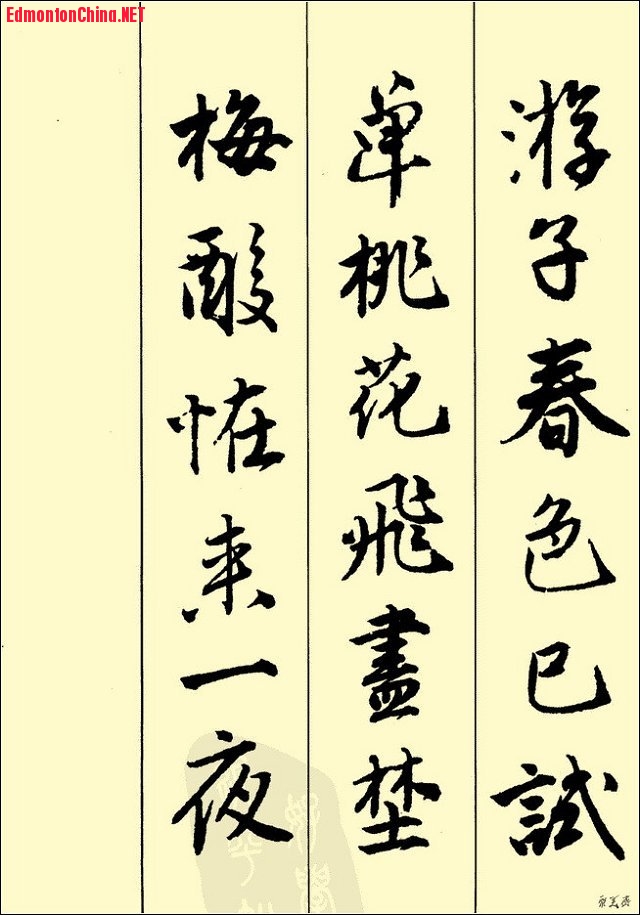 EdmontonChina.NET
游子春色已試
单桃花飛盡埜
梅酸恠来一夜